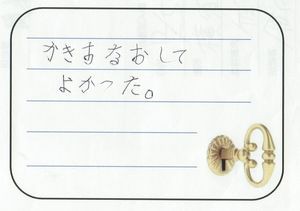 かきまなおして
よかった。